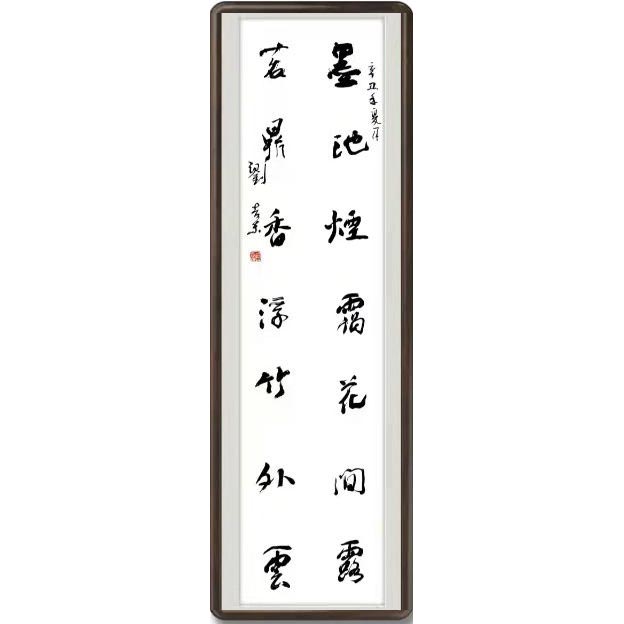 辛丑年夏月
墨池煙靄花間露
茗鼎香浮竹外雲
劉